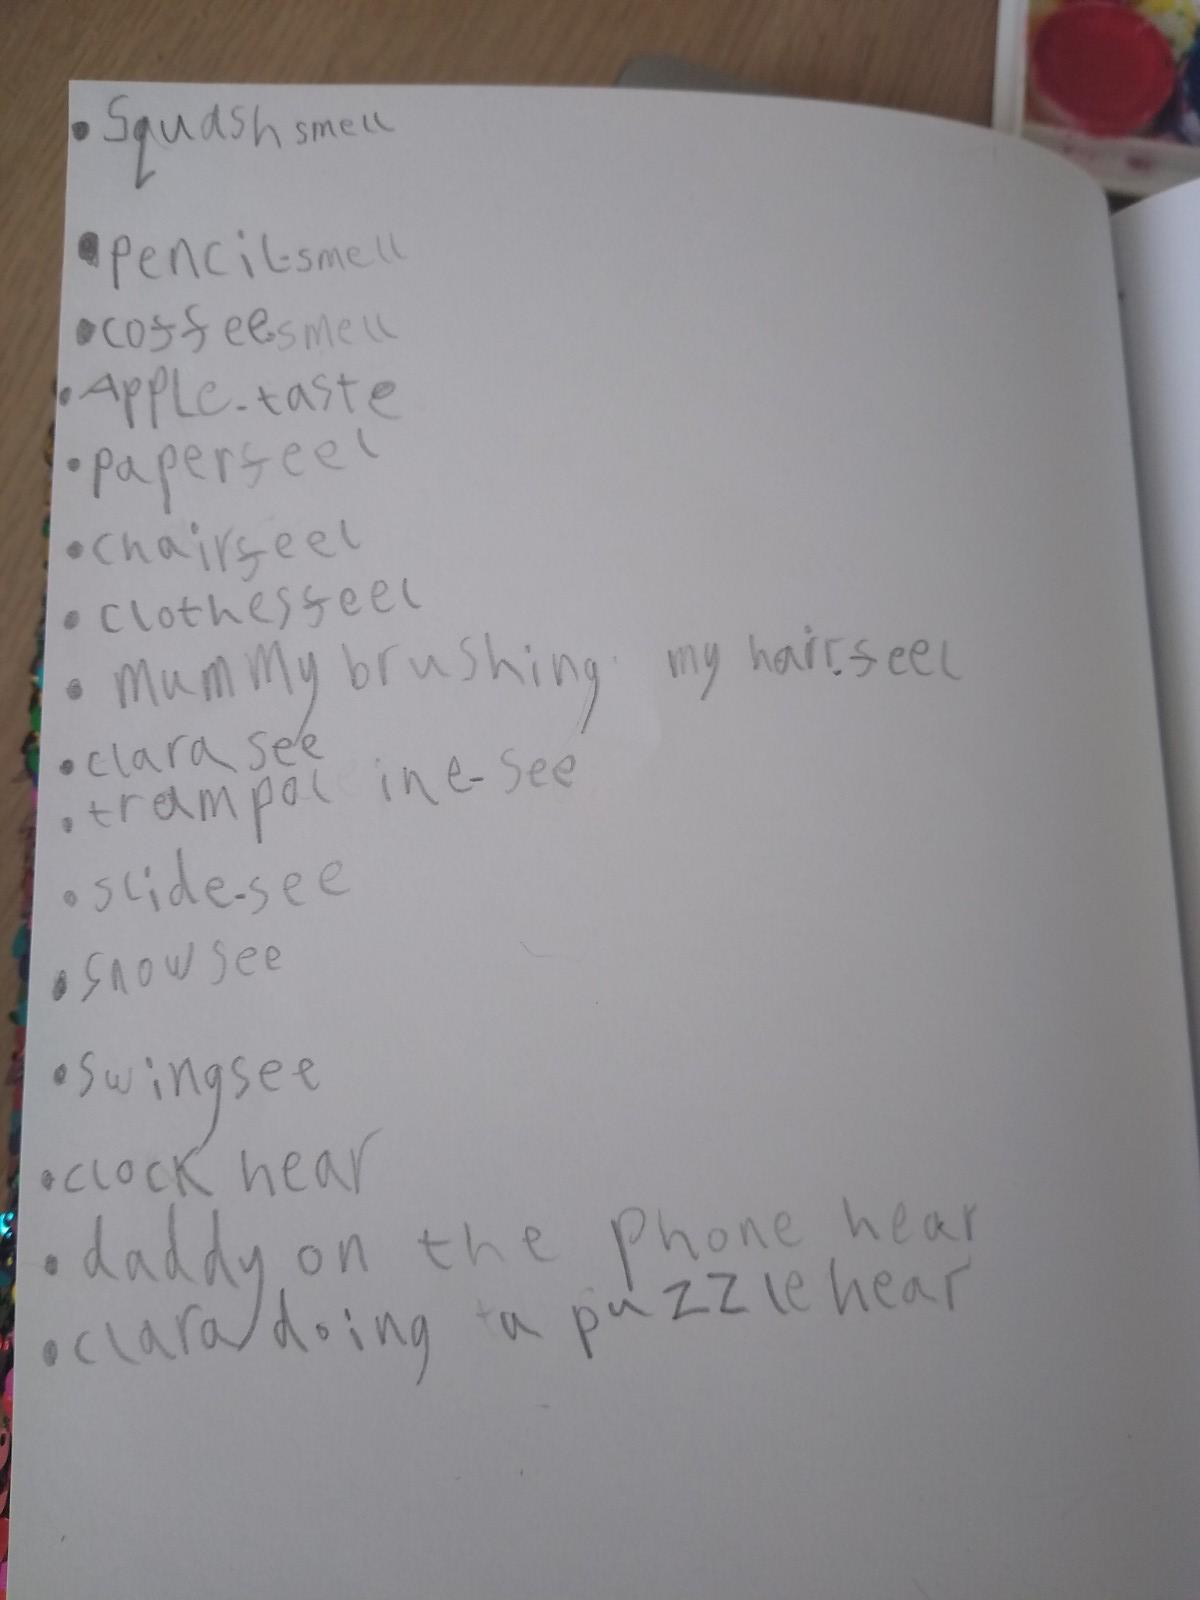 • Squash smell
• pencil-smell
• coffee smell
• Apple-taste
• paper feel
• chair feel
• clothes feel
• Mummy brushing my hair.feel
• clara see
• trampol ine-see
• slide-see
• snow see
• swing see
• clock hear
• daddy on the phone hear
• clara doing a puzzle hear